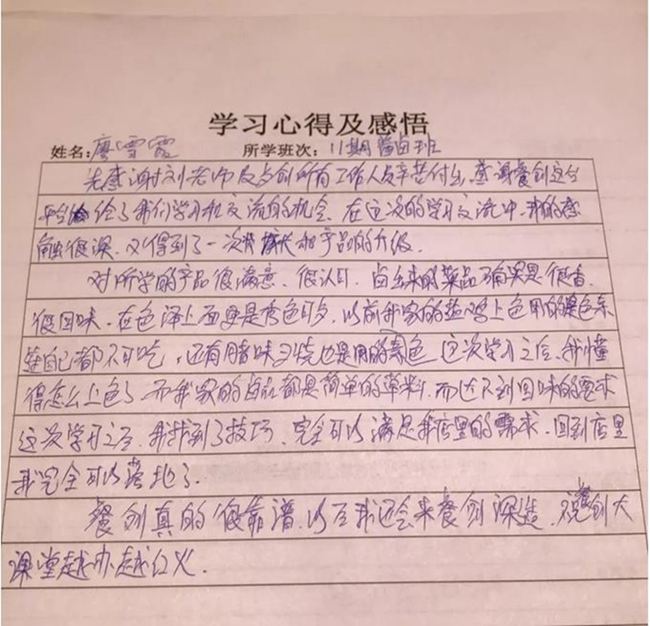 学习心得及感悟
姓名:廖雪霞 所学班次:11期卤味班
先感谢刘老师及与创所有工作人员辛苦付出,感谢餐创这个
平台给了我们学习和交流的机会,在这次的学习交流中,我的感
触很深,又得到了一次成长和产品的升级.
对所学的产品很满意,很认可,卤出来的菜品确实是很香,
很回味,在色泽上面更是秀色可,以前我家的盐鸡上色用的是色素
连自己都不可吃,还有腊味叉烧也是用的素色,这次学习之后,我懂
得怎么上色了,而我家的卤品都是简单的草料,而达不到回味的要求
这次学习之后,我找到了技巧,完全可以满足我店里的需求,回到店里
我完全可以落地了.
餐创真的很靠谱,以后我还会来餐创深造,祝创大
课堂越办越红火.